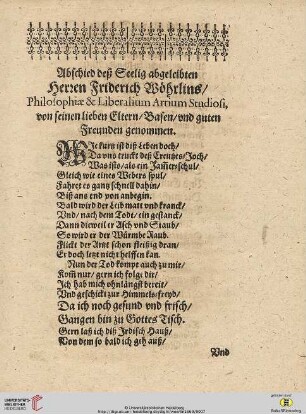 Abschied deß Seelig abgeleibten
Herren Friderich Wöhrlins/
Philosophiæ & Liberalium Artium Studiosi,
von seinen lieben Eltern/Basen/vnd guten
Freunden genommen.
WIe kurtz ist diß Leben doch/
Da vns truckt deß Creutzes/Joch/
Was ists/als ein Jam̃erschul/
Gleich wie eines Webers spul/
Fahret es gantz schnell dahin/
Biß ans end von anbegin.
Bald wird der Leib matt vnd kranck/
Vnd/nach dem Todt/ein gestanck/
Dann dieweil er Asch vnd Staub/
So wird er der Würmbe Raub.
Flickt der Artzt schon fleissig dran/
Er doch letzt nicht helffen kan.
Nun der Tod kompt auch zu mir/
Kom̃ nur/gern ich folge dir/
Ich hab mich ohnlängst bereit/
Vnd geschickt zur Himmels-freyd/
Da ich noch gesund vnd frisch/
Gangen bin zu Gottes Tisch.
Gern laß ich diß Irdisch Hauß/
Von dem so bald ich gih auß/
Vnd
UNIVERSITÄTS-
BIBLIOTHEK
HEIDELBERG
© Universitätsbibliothek Heidelberg